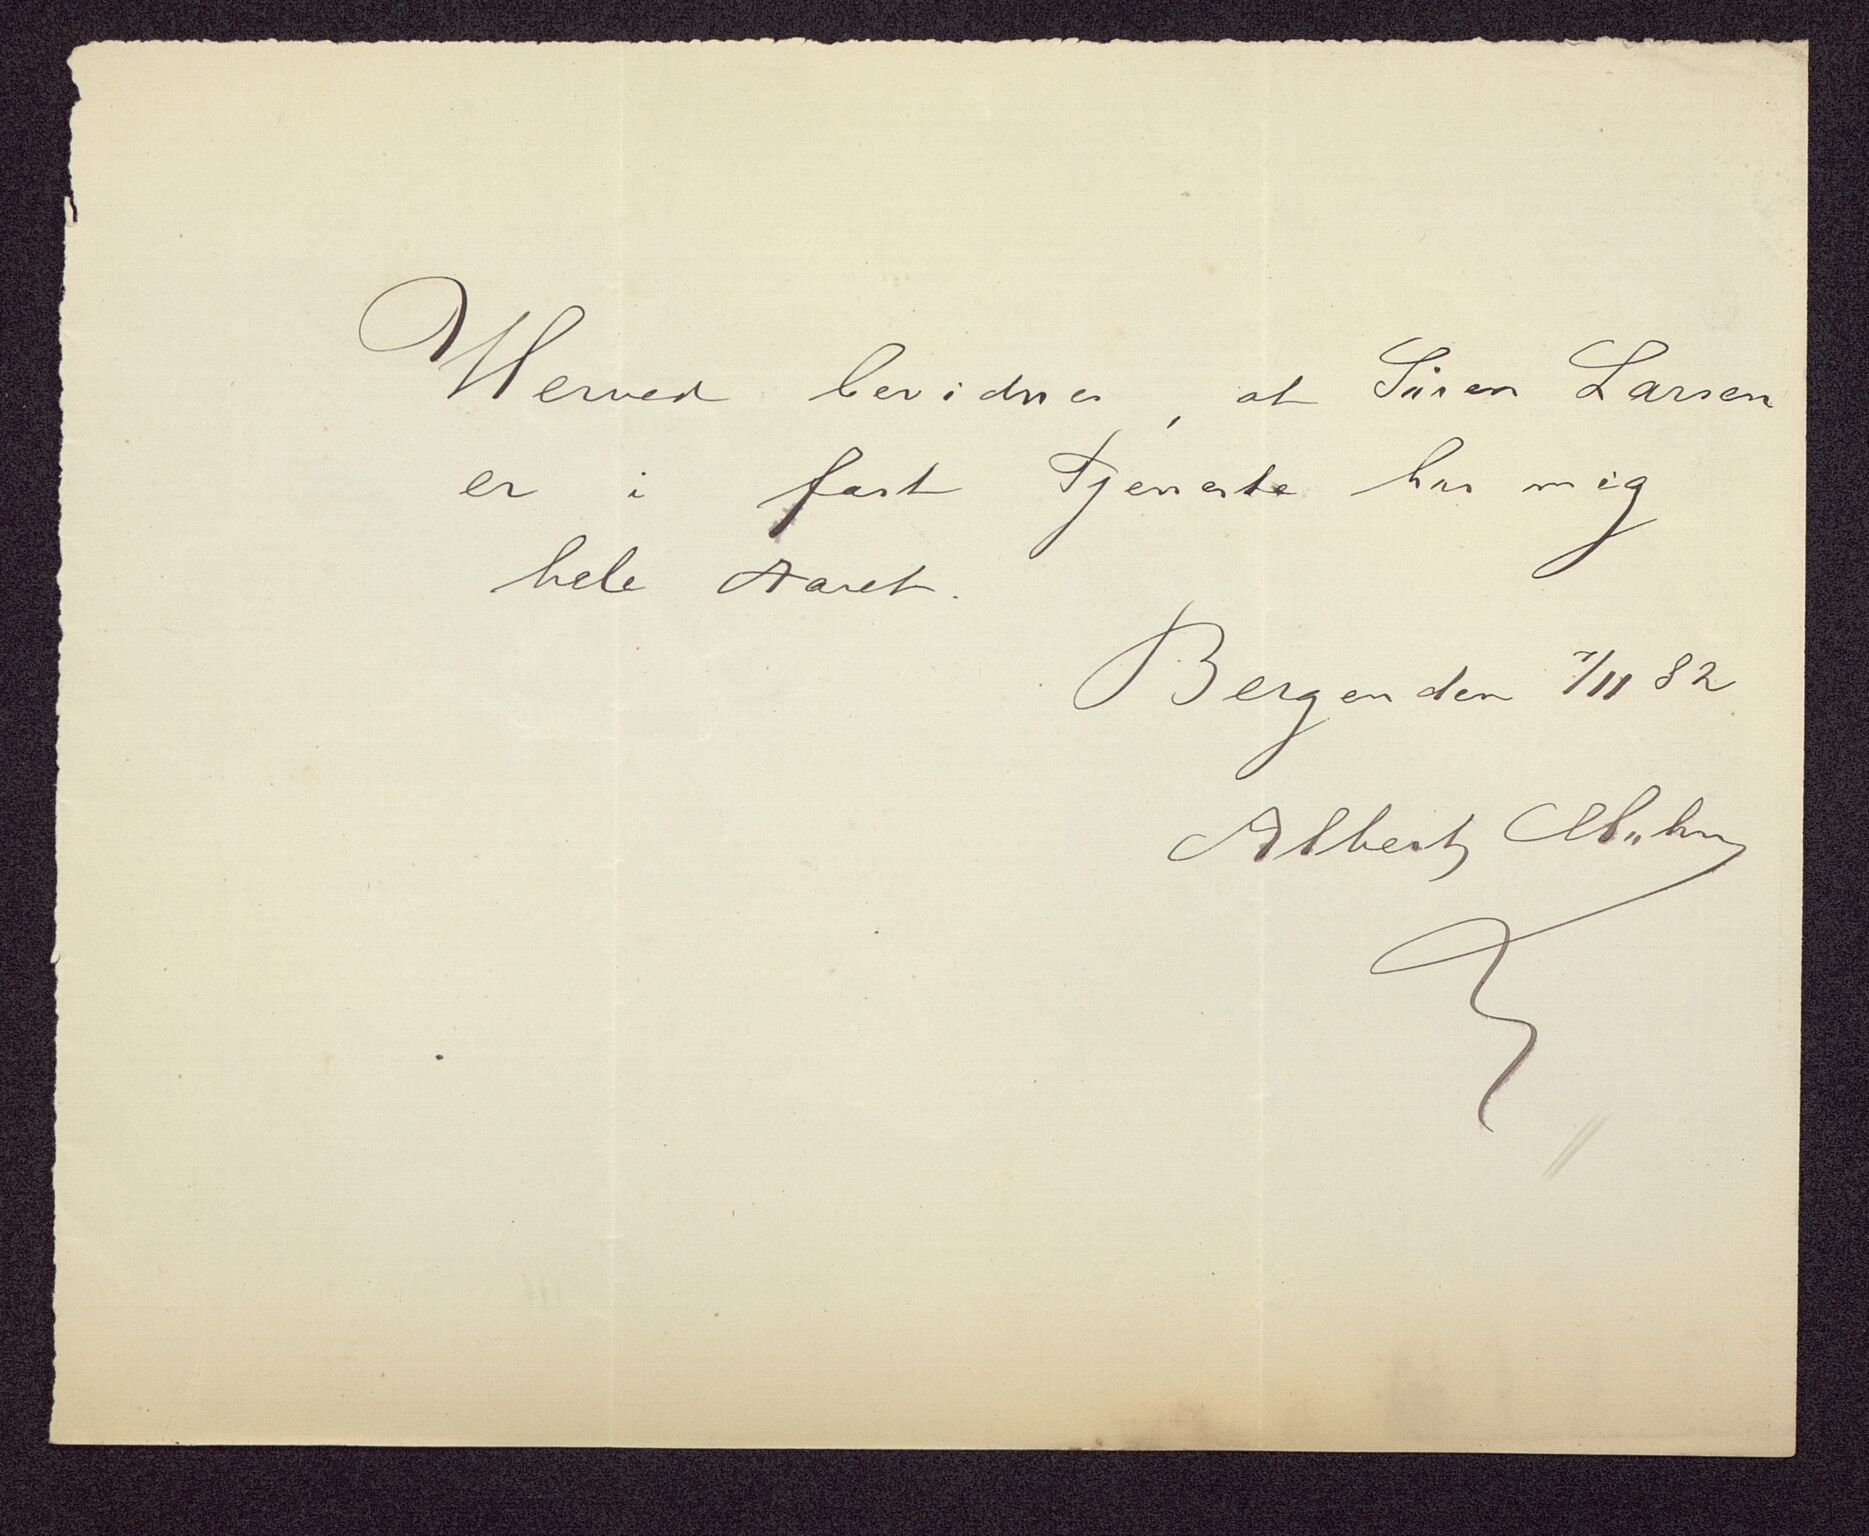 Herved bevidnes, at Sören Larsen
er i fast Tjeneste hos mig
hele Aaret.
Bergen den 7/11 82
Albert